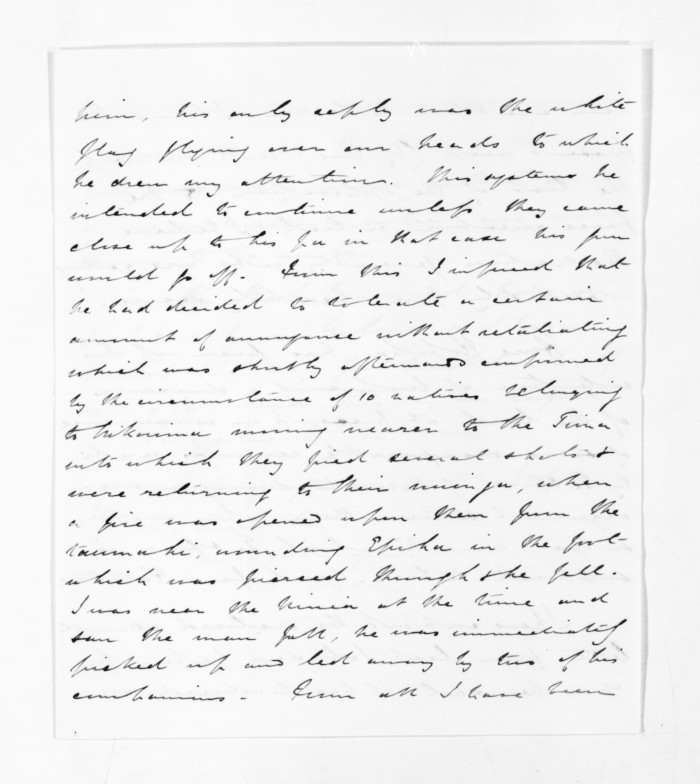 him, his only reply was the white
flag flying over our heads to which
he drew my attention. This systems he
intended to continue unless they came
close up to his pa in that case his gun
would go off. From this I inferred that
he had decided to tolerate a certain
amount of annoyance without retaliating
which was shortly afterwards confirmed
by the circumstance of 10 natives belonging
to moving nearer to the
into which they fired several shots &
were returning to their, when
a fire was opened upon them from the
taumaki, wounding Epiha in the foot
which was pierced through & he fell.
I was near the at the time and
saw the man fall, he was immediately
picked up and led away by two of his
companions. From all I have been